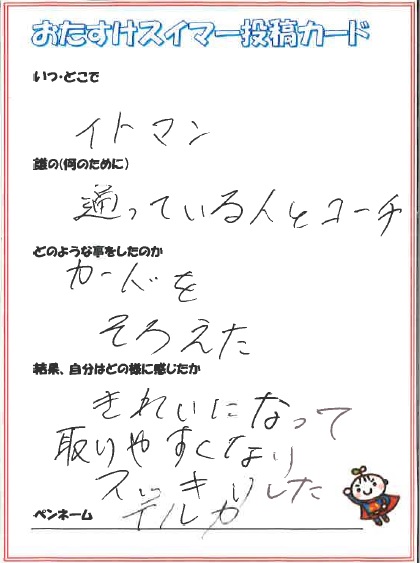 おたすけスイマー投稿カード
いつ・どこで
イトマン
誰の(何のために)
通っている人とコーチ
どのような事をしたのか
カードを
そろえた
結果、自分はどの様に感じたか
きれいになって
取りやすくなり
スッキリした
ペンネーム
デルガ